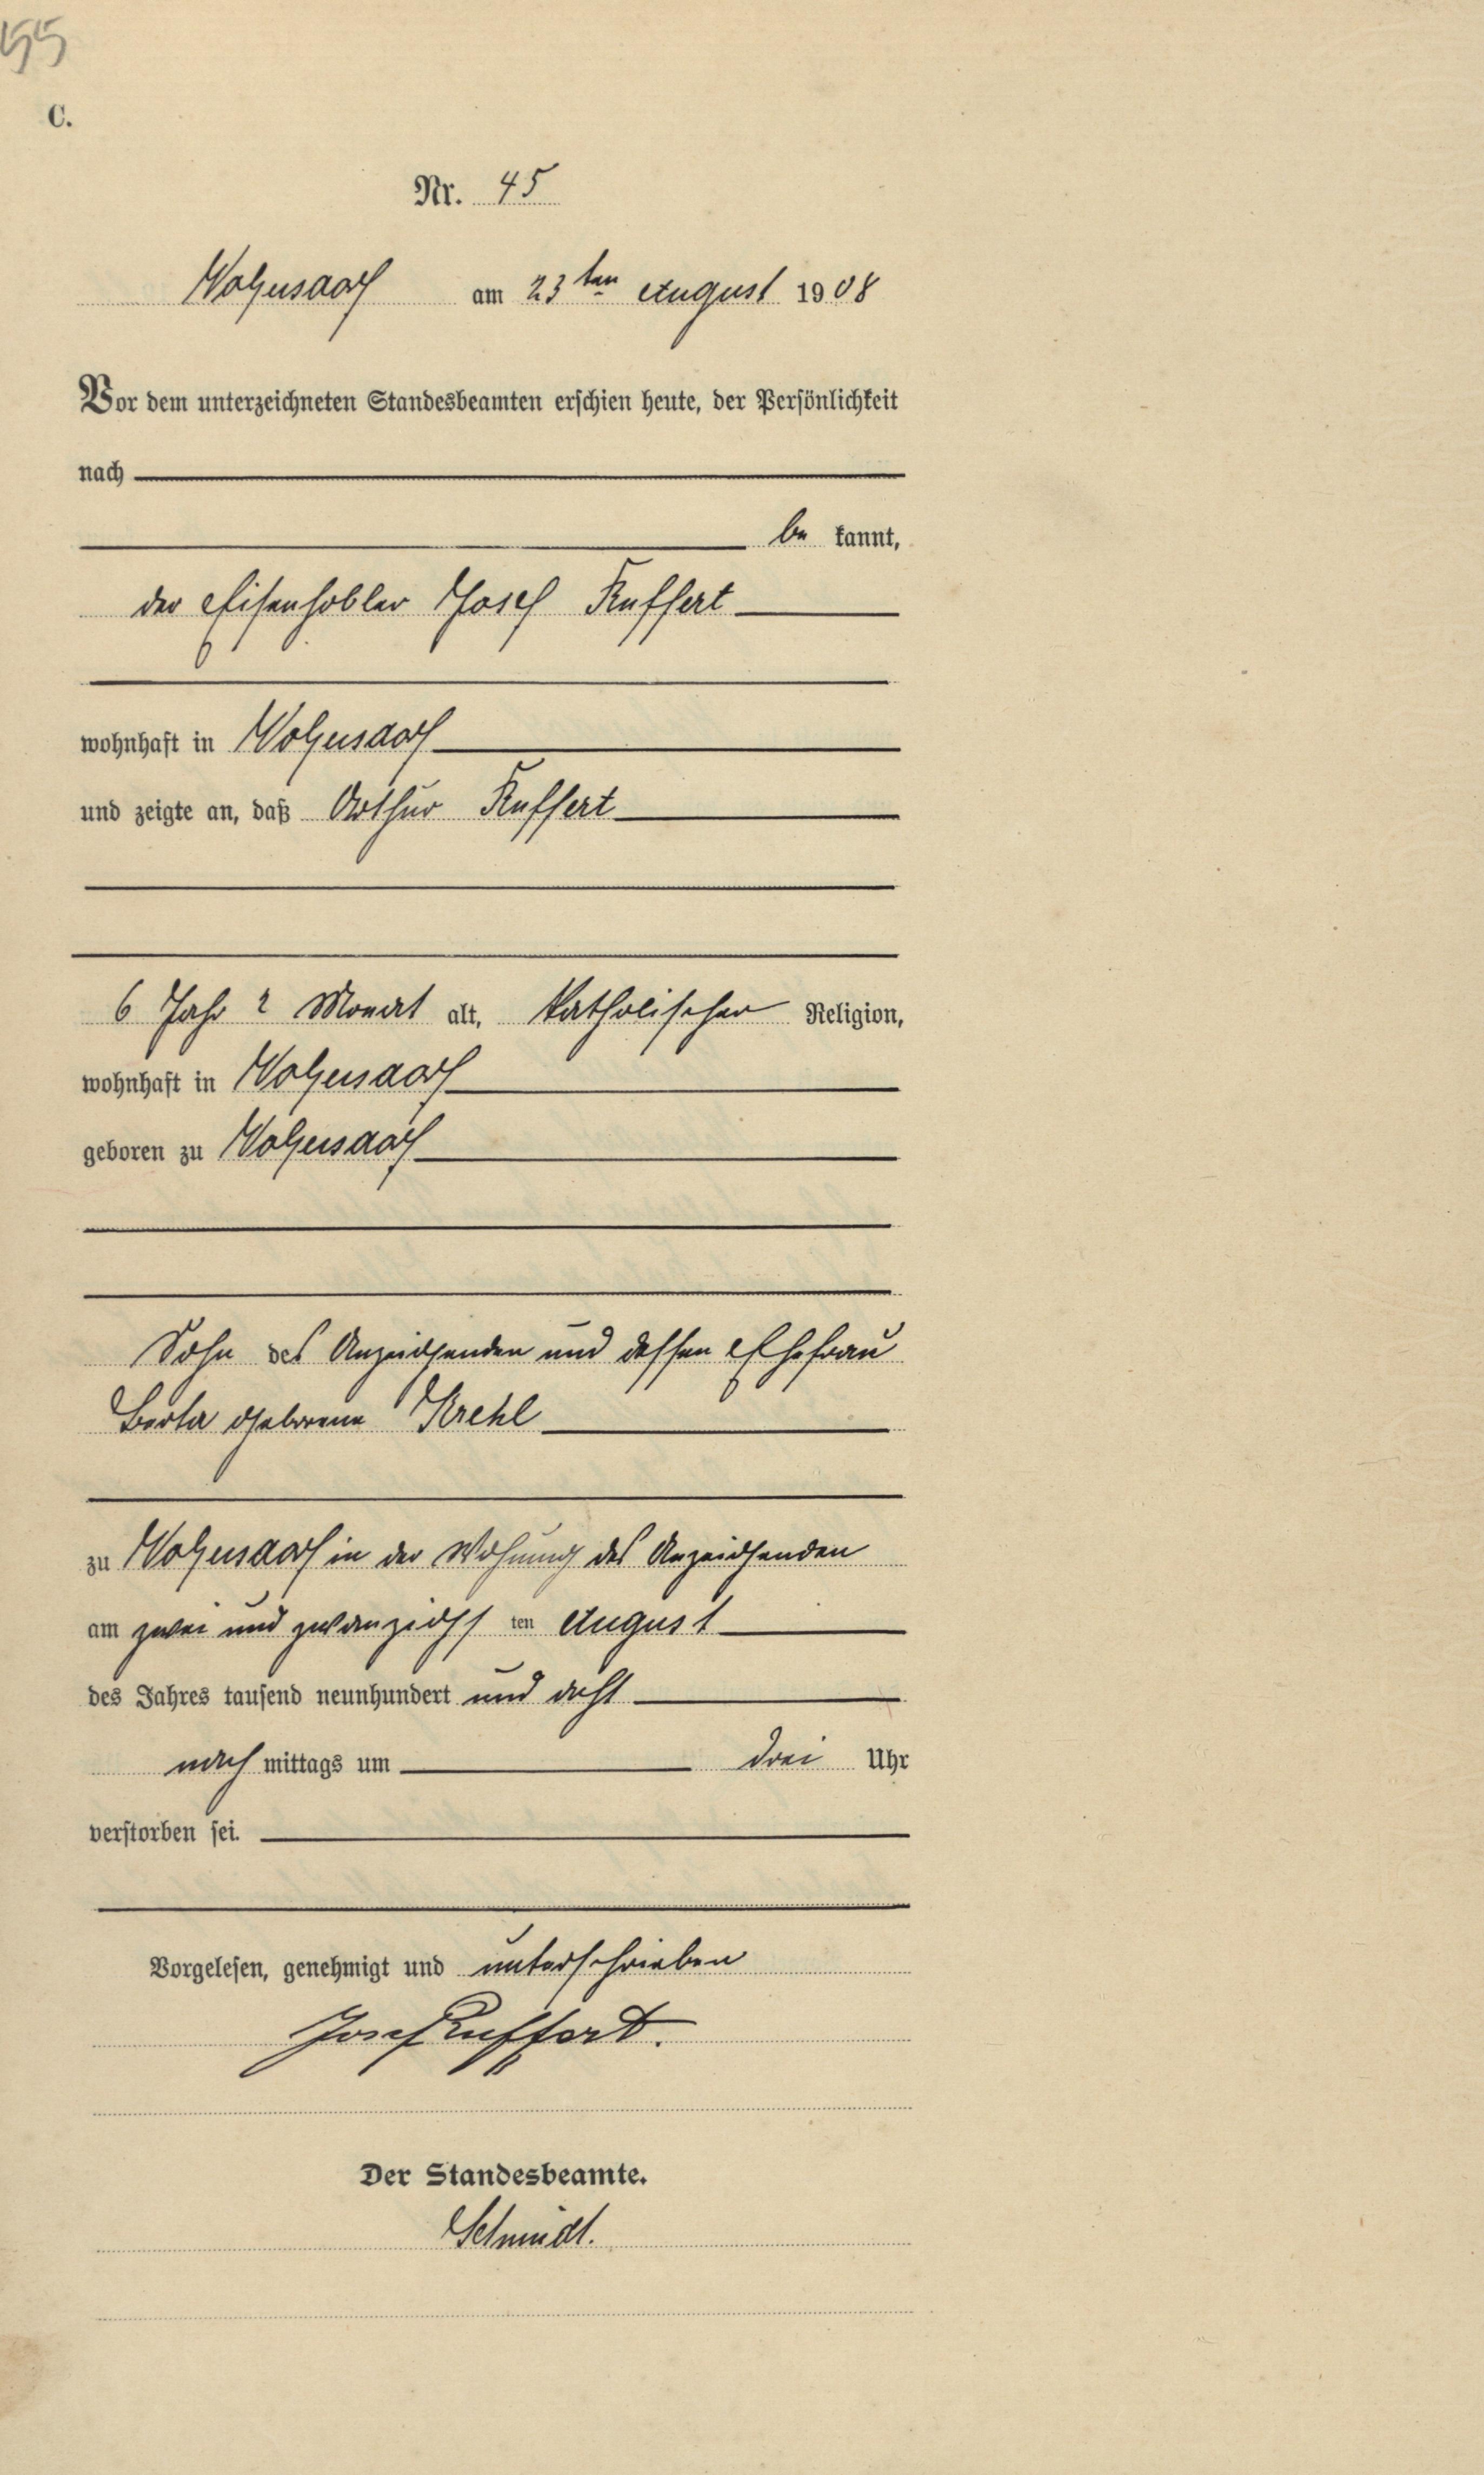 55
C.
Nr. 45
am 23ten August 1908
Vor dem unterzeichneten Standesbeamten erschien heute, der Persönlichkeit
nach
be kannt,
der Eisenhobler Josef Ruffert
wohnhaft in
und zeigte an, daß Arthur Ruffert
6 Jahr 2 Monat alt, katholischer Religion,
wohnhaft in
geboren zu
Sohn des Anzeigenden und dessen Ehefrau
Berta geborene Krehl
zu in der Wohnung des Anzeigenden
am zwei und zwanzigst ten August
des Jahres tausend neunhundert und acht
nach mittags um drei Uhr
verstorben sei.
Vorgelesen, genehmigt und unterschrieben
Josef Ruffert.
Der Standesbeamte.
Schmidt.